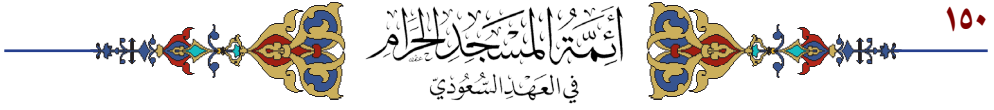 ١٥٠
أَئِمَّةُ المَسْجِدِ الحَرَامِ
فِي العَهْدِ السُّعُودِيّ